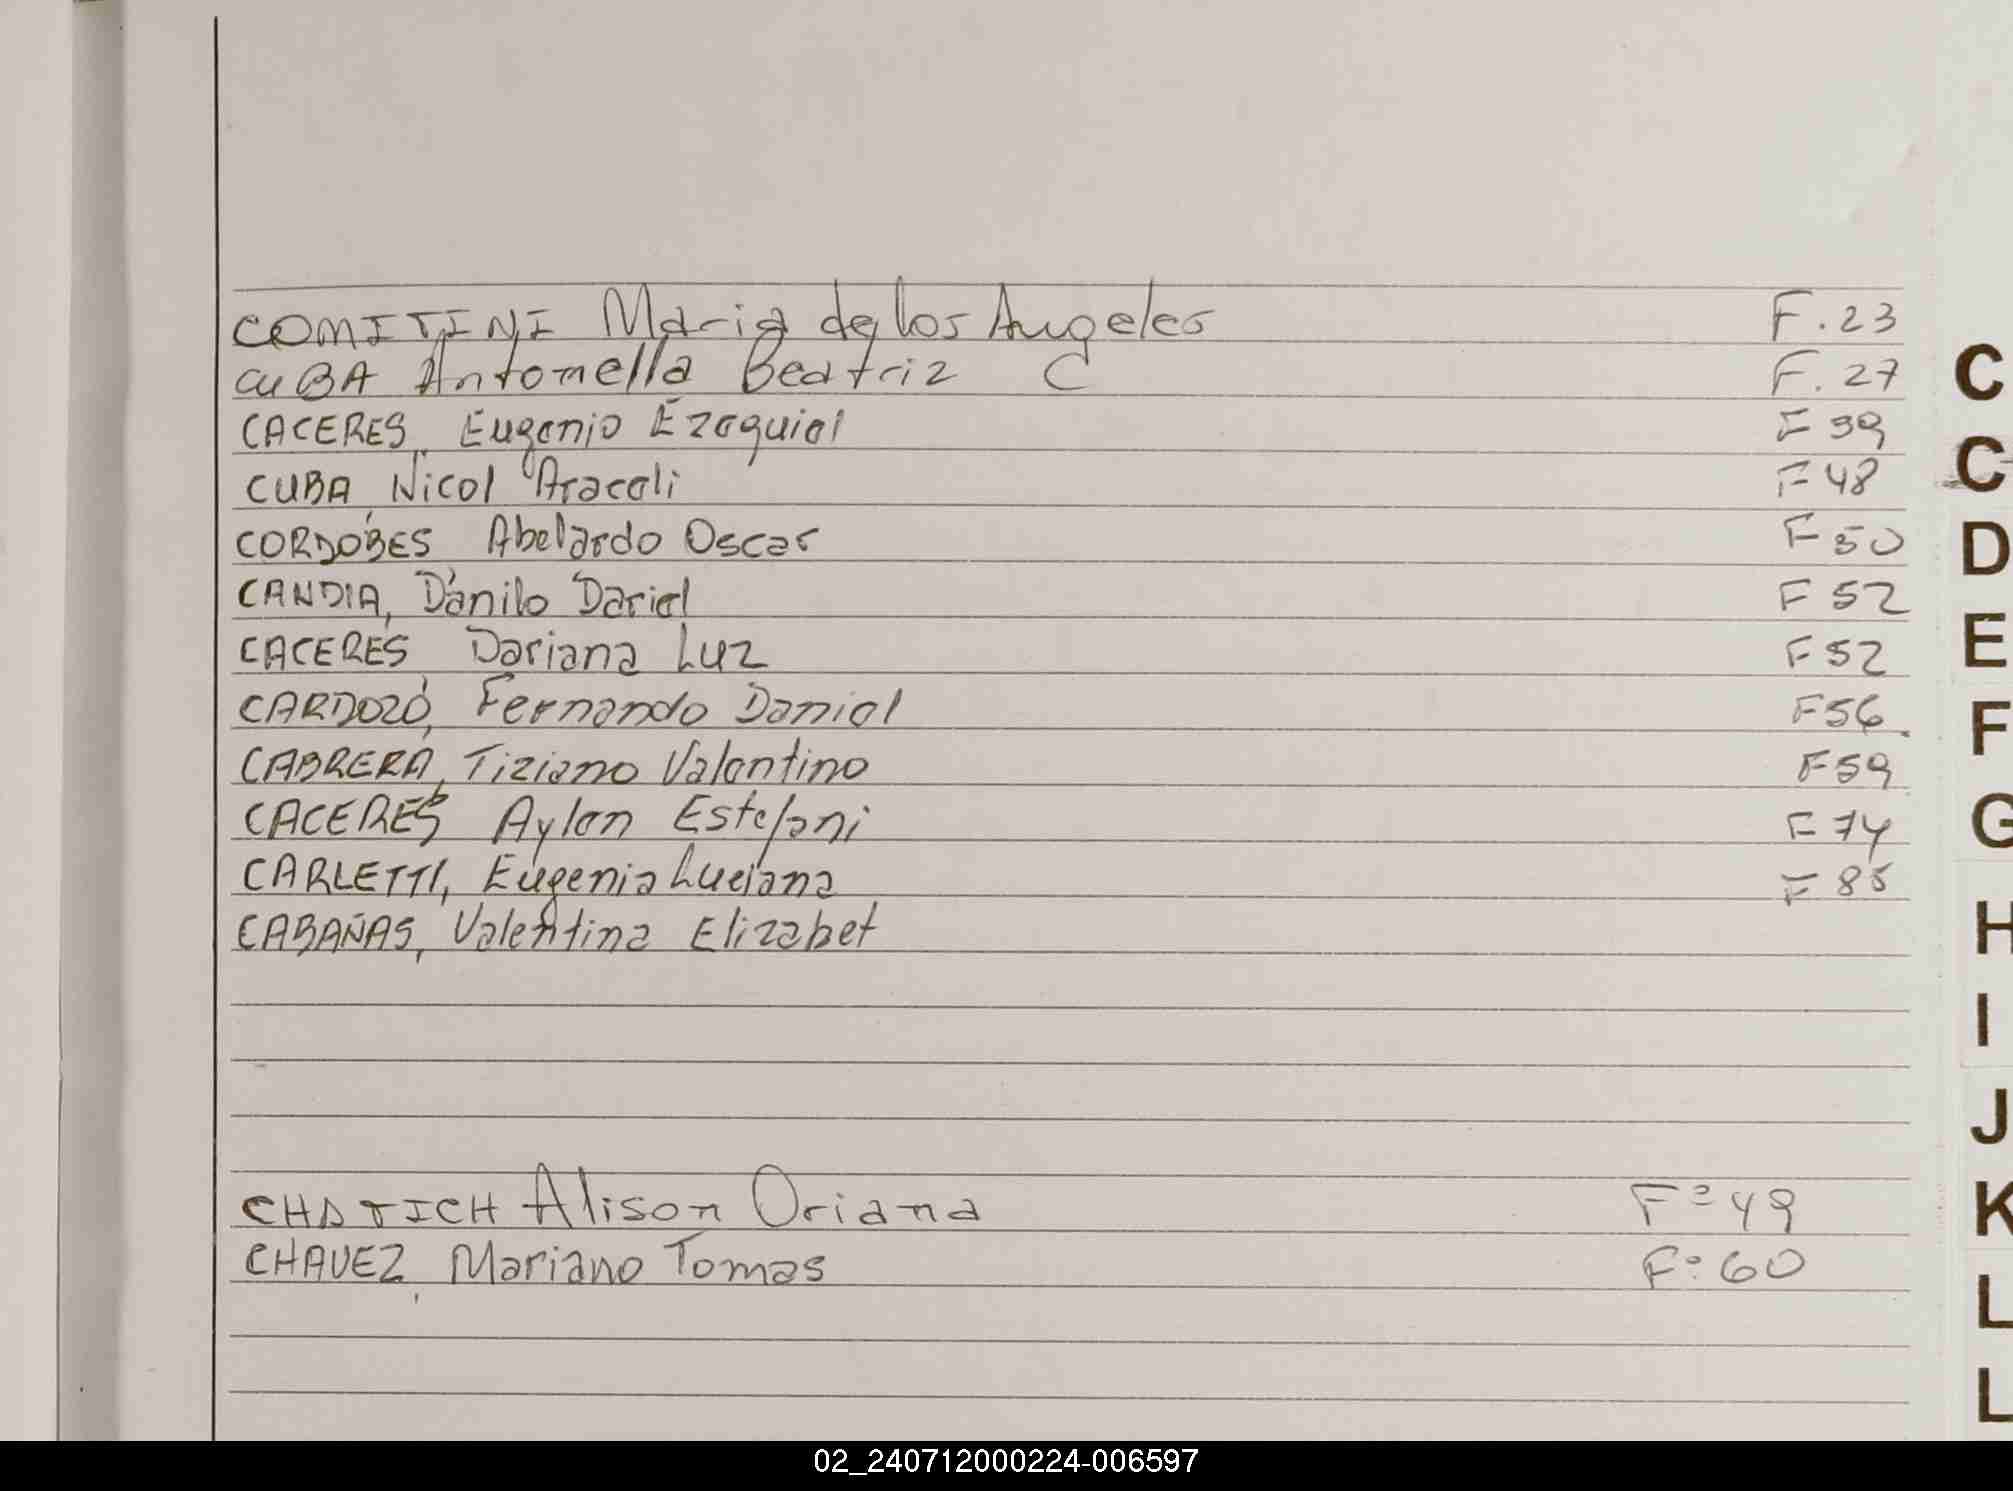 COMITINI Maria de los Angeles F. 23
CUBA Antonella Beatriz C F. 27
CACERES, Eugenio Ezequiel F 39
CUBA, Nicol Araceli F 48
CORDOBES Abelardo Oscar F 50
CANDIA, Danilo Dariel F 52
CACERES Dariana Luz F 52
CARDOZO, Fernando Daniel F 56
CABRERA, Tiziano Valentino F 59
CACERES Aylen Estefani F 74
CARLETTI, Eugenia Luciana F 85
CABAÑAS, Valentina Elizabet
CHATICH Alison Oriana Fº 49
CHAVEZ, Mariano Tomas Fº 60
C
C
D
E
F
G
H
I
J
K
L
L
02_240712000224-006597